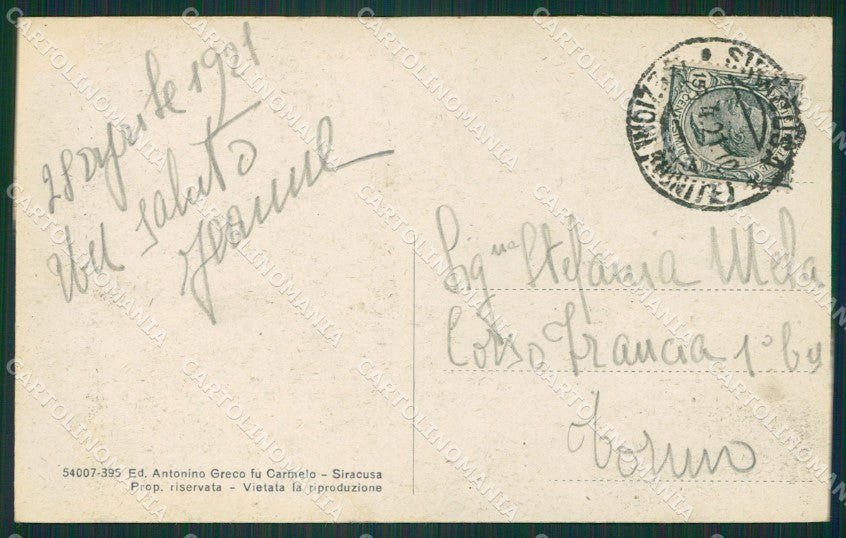 28 aprile 1921
un saluto
Jeanne
Sig.na Stefania Mela
Corso Francia 1º
Torino
54007-395 Ed. Antonino Greco fu Carmelo - Siracusa
Prop. riservata - Vietata la riproduzione
CARTOLINOMANIA